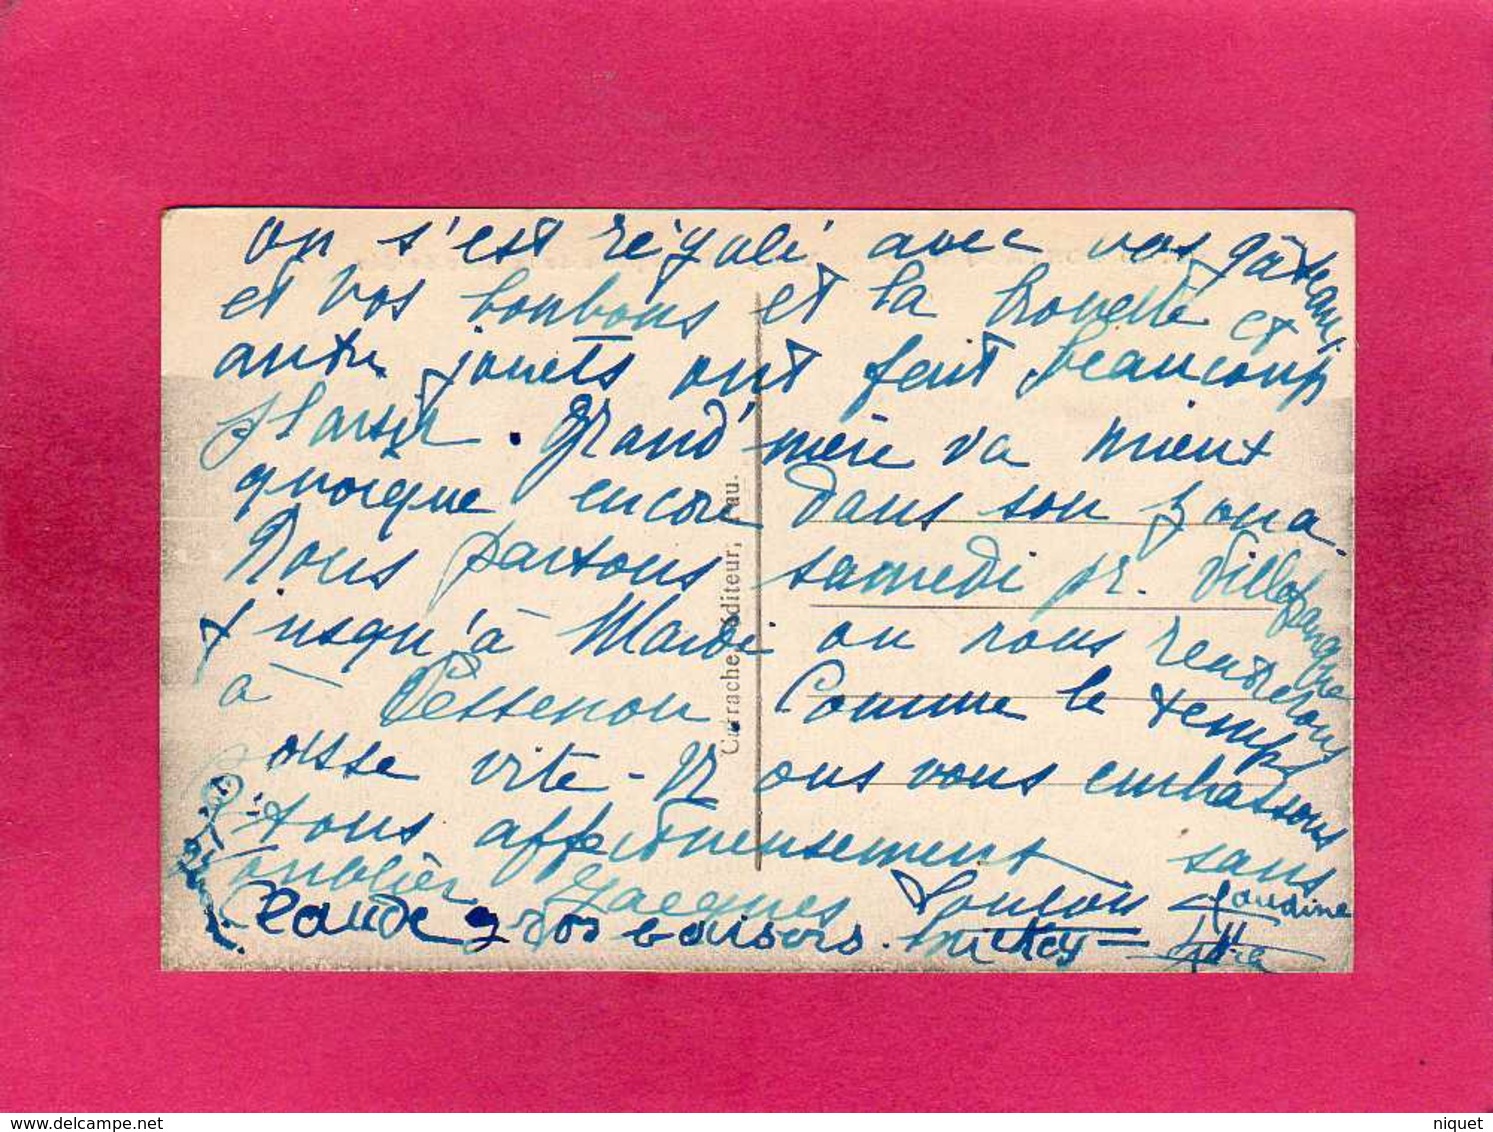 on s'est régalé avec vos gâteaux
et vos bonbons et la et
autre jouets ont fait beaucoup
plaisir. Grand'mère va mieux
quoique encore dans son zona.
Nous partons samedi pr. Villefranque
jusqu'à Mardi ou nous rendrerons
à Cessenon. Comme le temps
passe vite - Nous vous embrassons
tous affectueusement sans
oublier Jacques Loulou Claudine
Claude gros baisers. Mickey =
Carrache, éditeur, Pau.
niquet